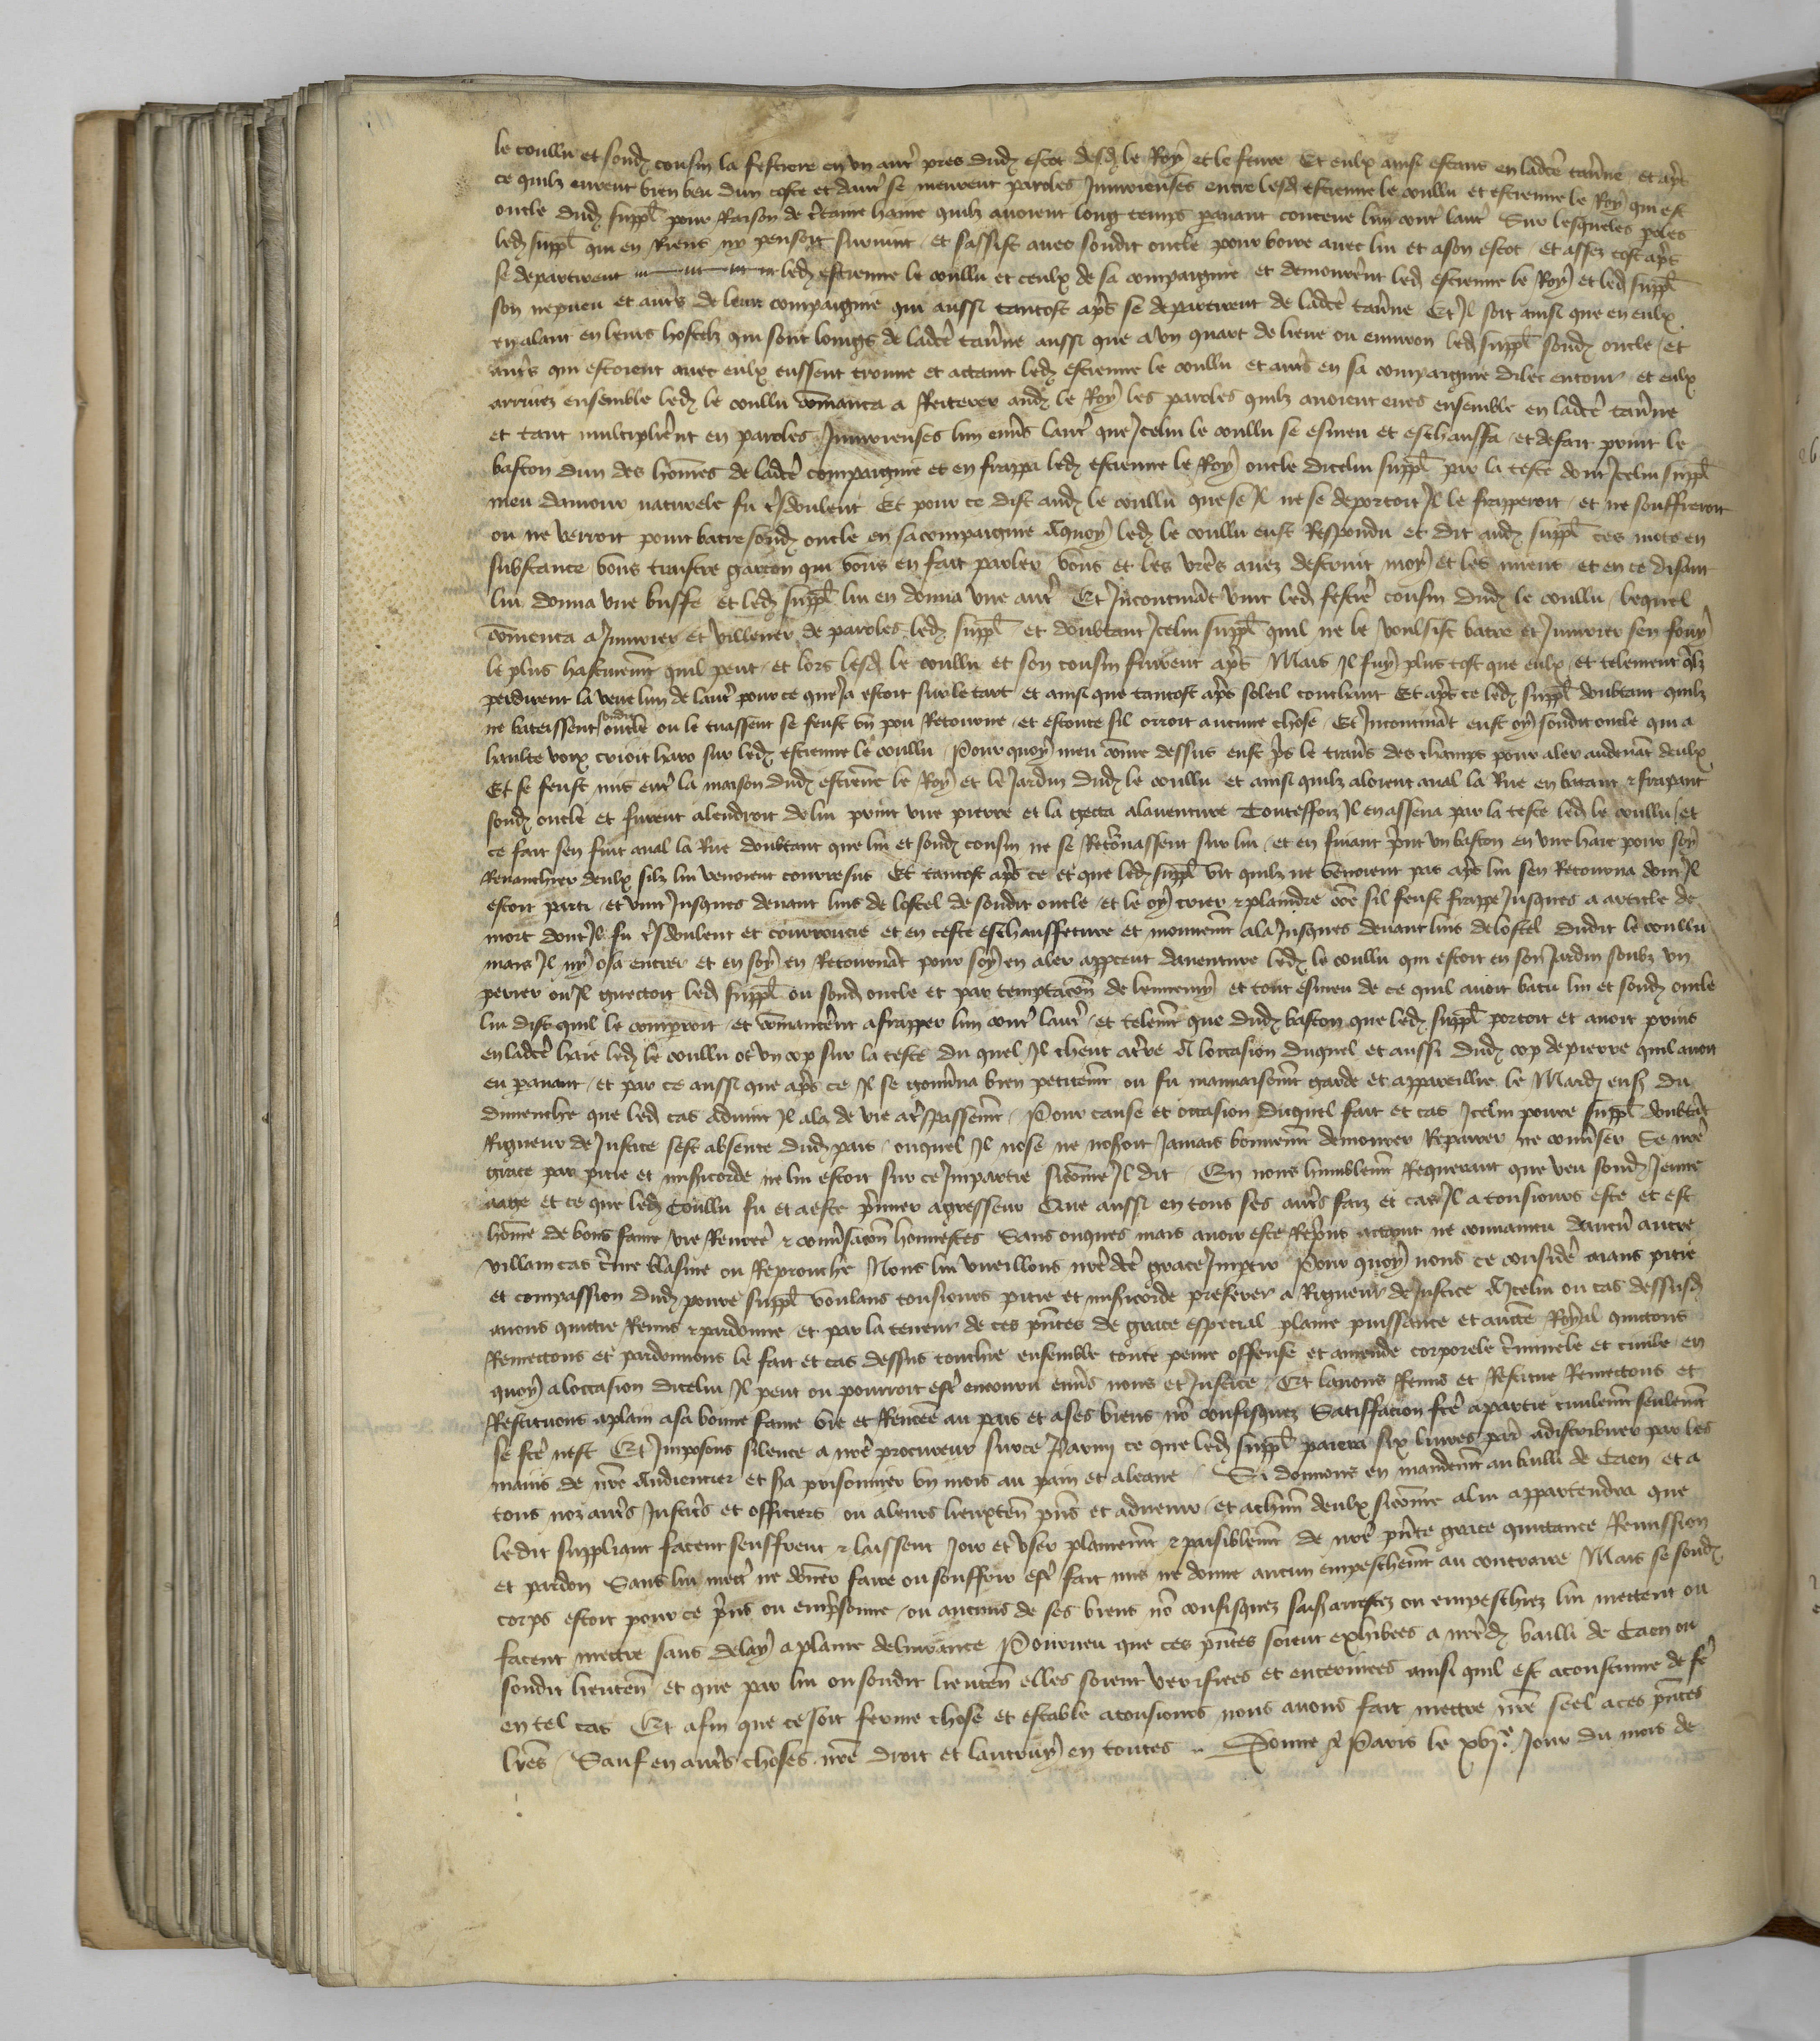 le coullu et sond cousin la festiere en un autr pres dud escot desd le Roy et le fevre Et eulx ainsi estans en ladce taverne et apres
ce quilz eurent bien beu dun coste et dautr se meurent paroles Injurieuses entre lesd estienne le coullu et estienne le Roy qui est
oncle dud suppl pour Raison de certaine haine quilz avoient long temps paravant conceue lun contr lautr Sur lesqueles poles
led suppl qui en Riens ny pensoit survint et sassist avec sondit oncle pour boire avec lui et a son escot et assez tost apres
se departirent led estienne le coullu et ceulx de sa compaignie et demourerent led estienne le Roy et led suppl
son nepveu et autrs de leur compaignie qui aussi tantost apres se departirent de ladce taverne Et Il soit ainsi que en eulx
en alant en leurs hostelz qui sont loings de ladce taverne aussi que a un quart de lieue ou environ led suppl sond oncle et
autrs qui estoient avec eulx eussent trouve et attaint led estienne le coullu et autrs en sa compaignie dilec entour et eulx
arrivez ensemble led le coullu commanca a Reiterer aud le Roy les paroles quilz avoient eues ensemble en ladce taverne
et tant multiplierent en paroles Injurieuses lun envers lautr que Icelui le coullu se esmeu et eschauffa et de fait print le
baston dun des hommes de ladce compaignie et en frappa led estienne le Roy oncle dicelui suppl par la teste dont Icelui suppl
meu damour naturele fu tresdoulent Et pour ce dist aud le coullu que se Il ne se deportoit Il le frapperoit et ne souffreroit
ou ne verroit point batre sond oncle en sa compaignie A quoy led le coullu eust Respondu et dit aud suppl ces mots en
substance vous truistre garcon qui vous en fait parler vous et les vres avez destruit moy et les miens et en ce disant
lui donna une buffe et led suppl lui en donna une autr Et Incontinant vint led festiere cousin dud le coullu lequel
commenca a Injurier et villener de paroles led suppl et doubtant Icelui suppl quil ne le voulsist batre et Injurier sen fouy
le plus hastivemt quil peut et lors lesd le coullu et son cousin furent apres Mais Il fuy plus tost que eulx et telement qlz
perdirent la veue lun de lautr pour ce que Ja estoit sur le tart et ainsi que tantost apres soleil couchant Et apres ce led suppl doubtant quilz
ne bateissent sondit oncle ou le tuassent se feust un pou Retourne et escoute sil orroit aucune chose Et Incontinant eust oy sondit oncle qui a
haulte voix crioit haro sur led estienne le coullu Pour quoy meu comme dessus eust pris le travers des champs pour aler audevant deulx
Et se feust mis entr la maison dud estienne le Roy et le Jardin dud le coullu et ainsi quilz aloient aval la Rue en batant & frapant
sond oncle et furent alendroit de lui print une pierre et la gecta alaventure Toutesfoiz Il en assena par la teste led le coullu et
ce fait sen fuit aval la Rue doubtant que lui et sond cousin ne se Retornassent sur lui et en fuiant print un baston en une haie pour soy
Revancher deulx silz lui venoient courre sus Et tantost apres ce et que led suppl vit quilz ne venoient pas apres lui sen Retourna dont Il
estoit parti et vint Jusques devant luis de lostel de sondit oncle et le oy crier & plaindre come sil feust frappe Jusques a article de
mort dont Il fu tresdoulent et courroucie et en ceste eschauffeture et mouvemt ala Jusques devant luis de lostel dudit le coullu
mais Il ny osa entrer et en soy en Retournant pour soy en aler appceut daventure led le coullu qui estoit en son Jardin soubz un
perier ou Il guectoit led suppl ou sond oncle et par temptacion de lennemy et tout esmeu de ce quil avoit batu lui et sond oncle
lui dist quil le comproit et commancerent a frapper lun contr lautr et telemt que dud baston que led suppl portoit et avoit prins
en ladce haie led le coullu ot un cop sur la teste du quel Il cheut a terre A loccasion duquel et aussi dud cop de pierre quil avoit
eu pavant et par ce aussi que apres ce Il se gouverna bien petitemt ou fu mauvaisemt garde et appareillie le Mardi ens du
dimenche que led cas advint Il ala de vie a trespassemt Pour cause et occasion duquel fait et cas Icelui povre suppl doubtant
Rigueur de Justice sest absente dud pais ouquel Il nose ne noseroit Jamais bonnemt demourer Repairer ne converser Se nre
grace par pitie et misericorde ne lui estoit sur ce Impartie sicomme Il dit En nous humblemt Requerant que veu sond Jeune
aage et ce que led Coullu fu et a este premier agresseur Que aussi en tous ses autrs faiz et cas Il a tousjours este et est
homme de bonne fame vie Renomee & conversacion honnestes Sans onques mais avoir este Repris attaint ne convaincu daucun autre
villain cas crime blasme ou Reprouche Nous lui vueillons nre dce grace Impartir Pour quoy nous ce consideré aians pitie
et compassion dud povre suppl voulans tousjours pitie et misericorde preferer a Rigueur de Justice A Icelui ou cas dessusd
avons quitte Remis & pardonne et par la teneur de ces pntes de grace especial plaine puissance et aucte Royal quittons
Remettons et pardonnons le fait et cas dessus touchie ensemble toute peine offense et amende corporele criminele et civile en
quoy a loccasion dicelui Il peut ou pourroit estr encouru envers nous et Justice Et lavons Remis et Restitue Remettons et
Restituons a plain a sa bonne fame vie et Renomee au pais et a ses biens non confisquez Satisfacion fcte a partie civilemt seulemt
se fcte nest Et Imposons silence a nre procureur sur ce Parmi ce que led suppl paiera six livres par a distribuer par les
mains de nre Audiencier et sa prisonnier un mois au pain et a leaue Si donnons en mandemt au bailli de Caen et a
tous noz autrs Justiciers et officiers ou a leurs lieuxten pns et advenir et a chun deulx sicomme a lui appartendra que
ledit suppliant facent seuffrent & laissent Joir et User plainemt & paisiblemt de nre pnte grace quittance Remission
et pardon Sans lui mectr ne donner faire ou souffrir estr fait mis ne donne aucun empeschemt au contraire Mais se sond
corps estoit pour ce pris ou emprisonne ou aucuns de ses biens non confisquez saisiz arrestez ou empeschiez lui mettent ou
facent mettre sans delay a plaine delivrance Pourveu que ces pntes soient exhibees a nred bailli de Caen ou
sondit lieuten et que par lui ou sondit lieuten elles soient verifiees et enterinees ainsi quil est acoustume de fe
en tel cas Et afin que ce soit ferme chose et estable a tousjours nous avons fait mettre nre seel a ces pntes
lres Sauf en autrs choses nre droit et lautruy en toutes Donne a Paris le xvje Jour du mois de